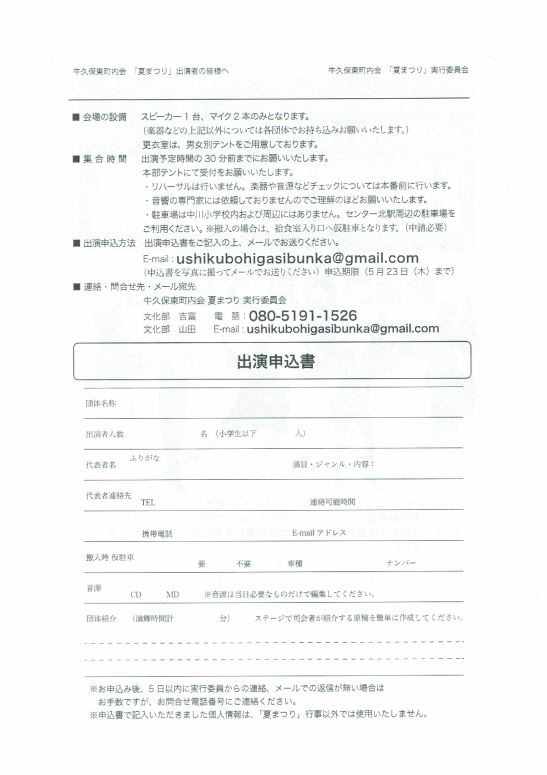 牛久保東町内会 「夏まつり」出演者の皆様へ 牛久保東町内会 「夏まつり」実行委員会
■ 会場の設備 スピーカー1台、マイク2本のみとなります。
（楽器などの上記以外については各団体でお持ち込みお願いいたします。）
更衣室は、男女別テントをご用意しております。
■ 集合時間 出演予定時間の30分前までにお願いいたします。
本部テントにて受付をお願いいたします。
・リハーサルは行いません。楽器や音源などチェックについては本番前に行います。
・音響の専門家には依頼しておりませんのでご理解のほどお願いいたします。
・駐車場は中川小学校内および周辺にはありません。センター北駅周辺の駐車場を
ご利用ください。※搬入の場合は、給食室入り口へ仮駐車となります。（申請必要）
■ 出演申込方法 出演申込書をご記入の上、メールでお送りください。
E-mail : ushikubohigasibunka@gmail.com
（申込書を写真に撮ってメールでお送りください）申込期限（5月23日（木）まで）
■ 連絡・問合せ先・メール宛先
牛久保東町内会 夏まつり 実行委員会
文化部 吉富 電 話：080-5191-1526
文化部 山田 E-mail : ushikubohigasibunka@gmail.com
出演申込書
団体名称
出演者人数 名 （小学生以下 人）
ふりがな
代表者名 演目・ジャンル・内容：
代表者連絡先 TEL 連絡可能時間
携帯電話 E-mail アドレス
搬入時 仮駐車 要 不要 車種 ナンバー
音源 CD MD ※音源は当日必要なものだけで編集してください。
団体紹介 （演舞時間計 分） ステージで司会者が紹介する原稿を簡単に作成してください。
※お申込み後、5日以内に実行委員からの連絡、メールでの返信が無い場合は
お手数ですが、お問合せ電話番号にご連絡ください。
※申込書で記入いただきました個人情報は、「夏まつり」行事以外では使用いたしません。